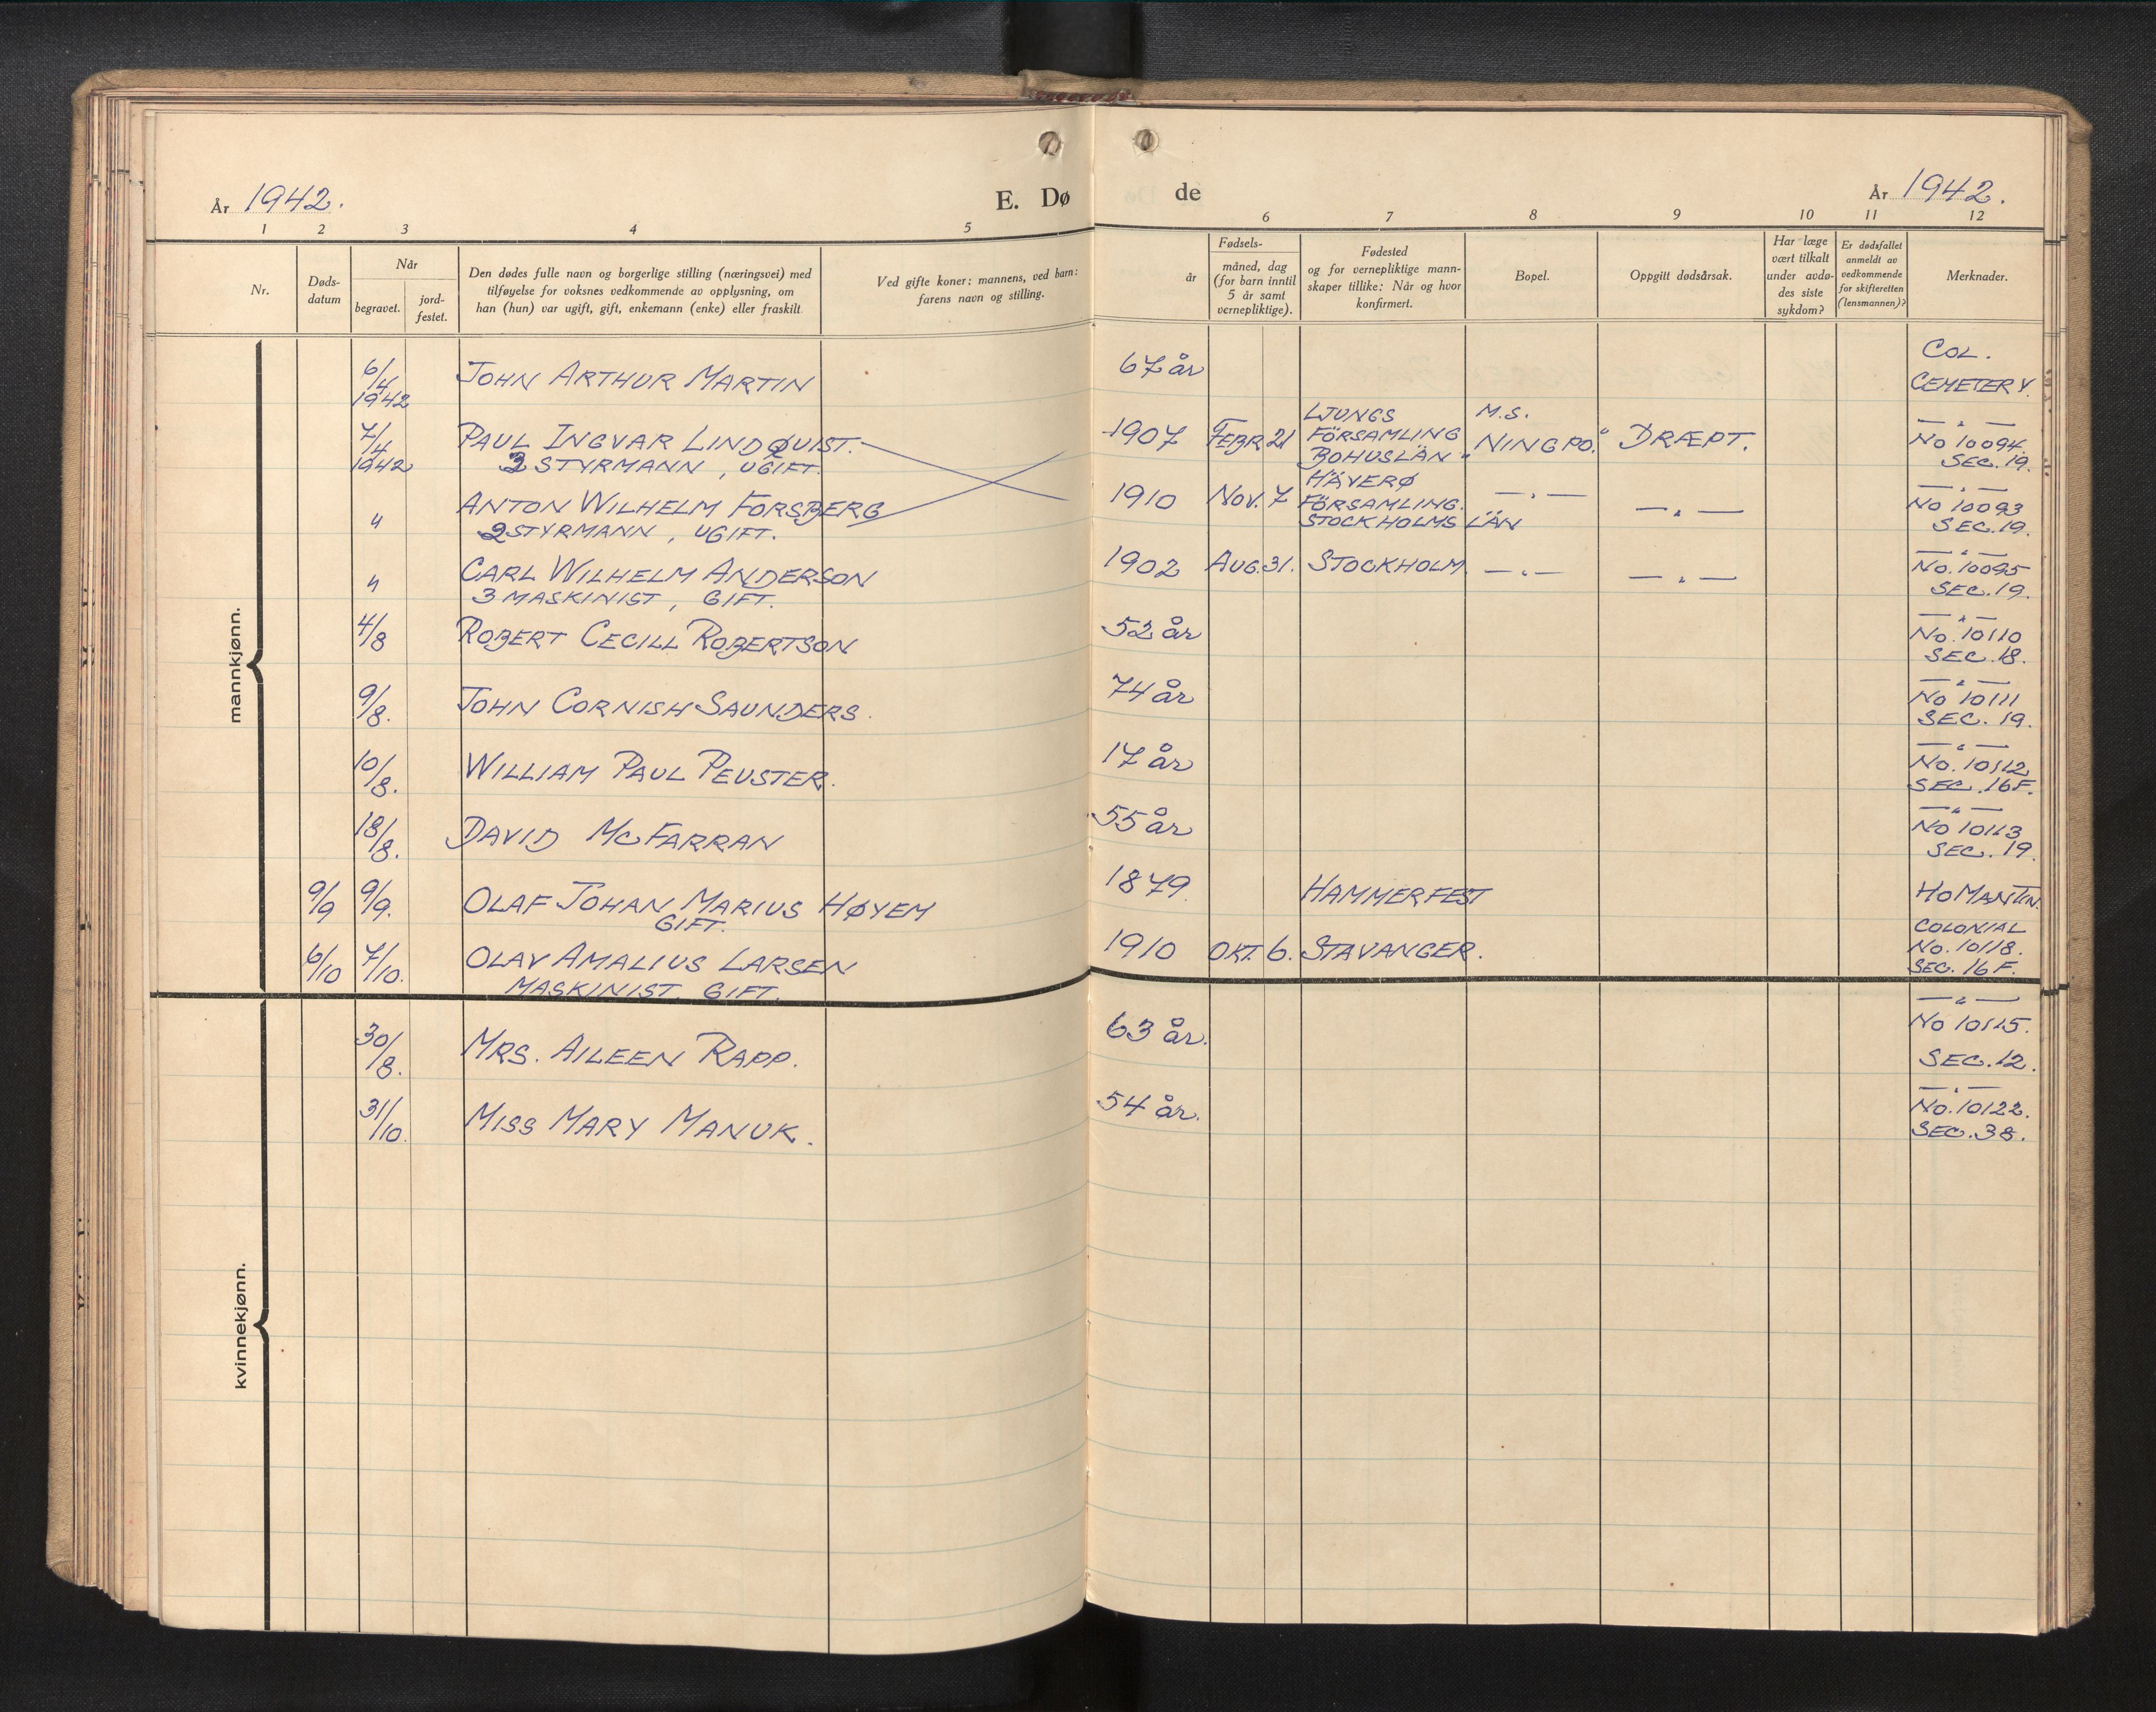 År 1942. E. Dø de År 1942.
1 2 3 4 5 6 7 8 9 10 11 12
Nr.
Døds-
datum
Når
begravet.
jord-
festet.
Den dødes fulle navn og borgerlige stilling (næringsvei) med
tilføyelse for voksnes vedkommende av opplysning, om
han (hun) var ugift, gift, enkemann (enke) eller fraskilt
Ved gifte koner: mannens, ved barn:
farens navn og stilling.
år
Fødsels-
måned, dag
(for barn inntil
5 år samt
vernepliktige).
Fødested
og for vernepliktige mann-
skaper tillike: Når og hvor
konfirmert.
Bopel.
Oppgitt dødsårsak.
Har læge
vært tilkalt
under avdø-
des siste
sykdom?
Er dødsfallet
anmeldt av
vedkommende
for skifteretten
(lensmannen)?
Merknader.
mannkjønn.
6/4 1942 JOHN ARTHUR MARTIN 67 år COL.
CEMETERY.
7/4 1942 PAUL INGVAR LINDQUIST. 1907 FEBR 21 LJUNGS M.S. — " —
3 STYRMANN, UGIFT. FÖRSAMLING "NINGPO." DRÆPT. No 10094.
BOHUSLÄN SEC. 19.
" ANTON WILHELM FORSBERG 1910 NOV. 7 HÄVERØ — " — — " — — " —
2 STYRMANN, UGIFT. FÖRSAMLING. No 10093
STOCKHOLMS LÄN SEC. 19.
" CARL WILHELM ANDERSON 1902 AUG. 31. STOCKHOLM. — " — — " — — " —
3 MASKINIST, GIFT. No. 10095
SEC. 19.
4/8 ROBERT CECILL ROBERTSON 52 år — " —
No. 10110
SEC. 18.
9/8. JOHN CORNISH SAUNDERS. 74 år — " —
No 10111
SEC. 19.
10/8. WILLIAM PAUL PEUSTER. 17 år — " —
No. 10112
SEC. 16 F.
18/8. DAVID MC FARRAN 55 år — " —
No 10113
SEC. 19.
9/9 9/9. OLAF JOHAN MARIUS HØYEM 1879. HAMMERFEST HOMANTIN.
GIFT.
6/10 7/10. OLAV AMALIUS LARSEN 1910 OKT. 6. STAVANGER. COLONIAL
MASKINIST. GIFT. No. 10118.
SEC. 16 F.
kvinnekjønn.
30/8. MRS. AILEEN RAPP. 63 år. — " —
No 10115.
SEC. 12.
31/10. MISS MARY MANUK. 54 år. — " —
No. 10122.
SEC. 38.